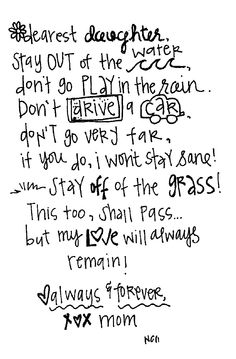 *dearest daughter,
Stay OUT of the water
don't go PLAY in the rain.
Don't drive a car,
don't go very far,
if you do, i won't stay sane!
Stay off of the grass!
This too, shall pass...
but my LOVE will always
remain!
always & forever,
xox mom